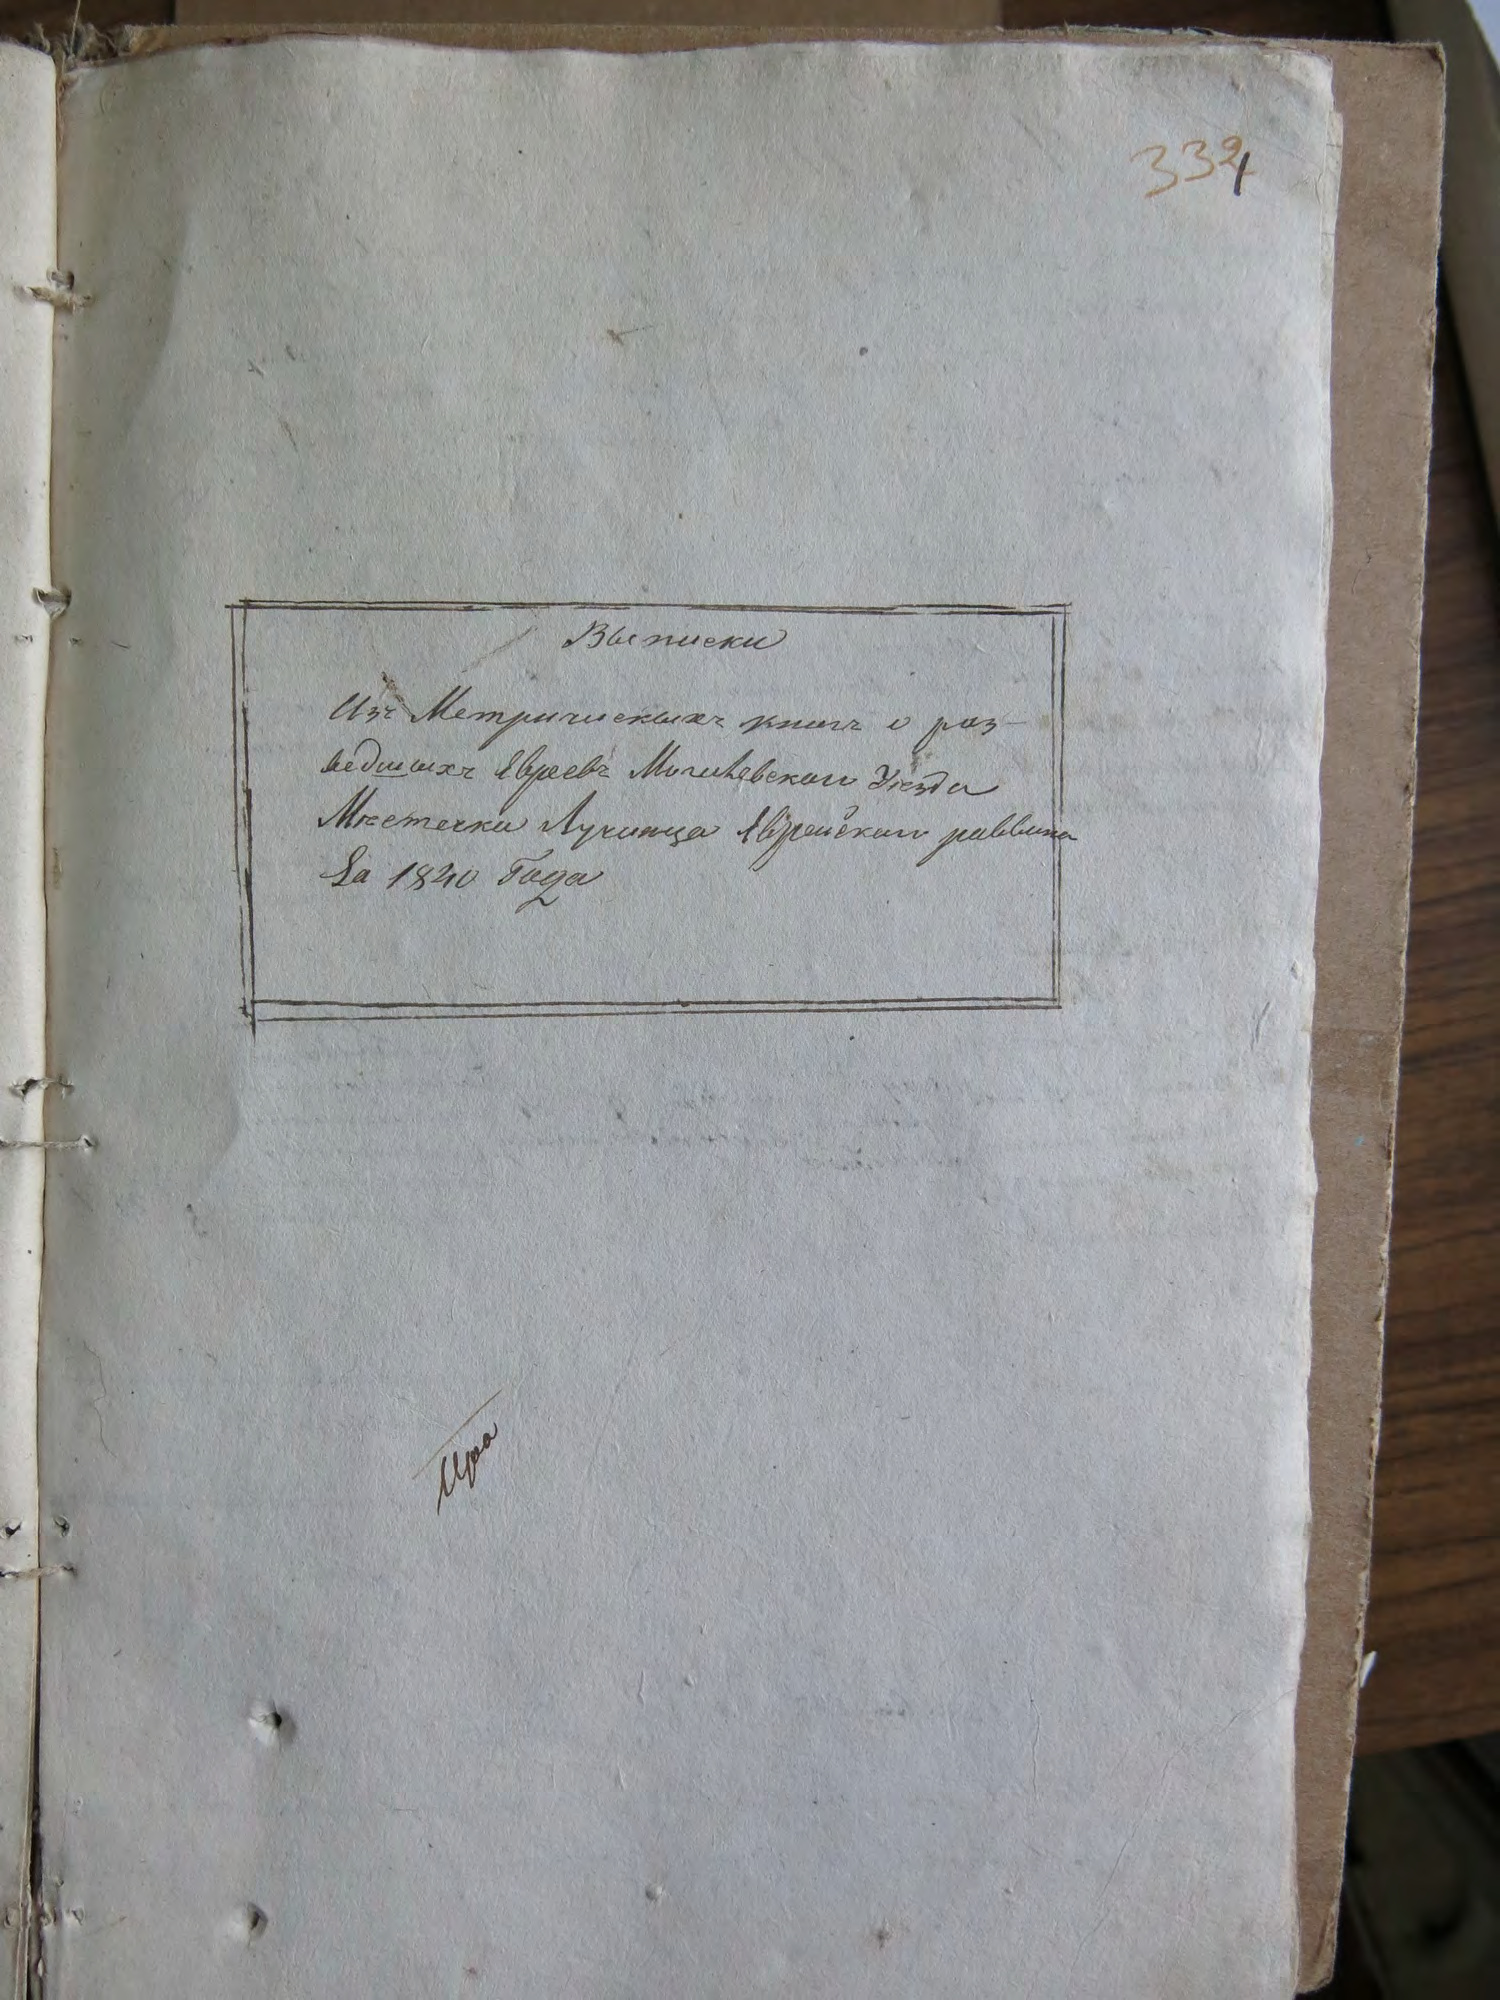 331
Выписки
Изъ Метрическихъ книгъ о раз-
ведшихъ Евреевъ Могилевского Уезда
Мѣстечка Лучинца Еврейского раввина
За 1840 Года